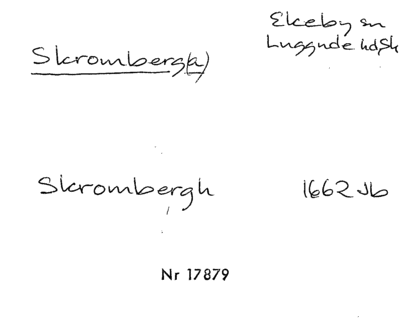 Skromberg(a)
Ekeby sn
Luggude hd Sk
Skrombergh 1662 Jb
Nr 17879